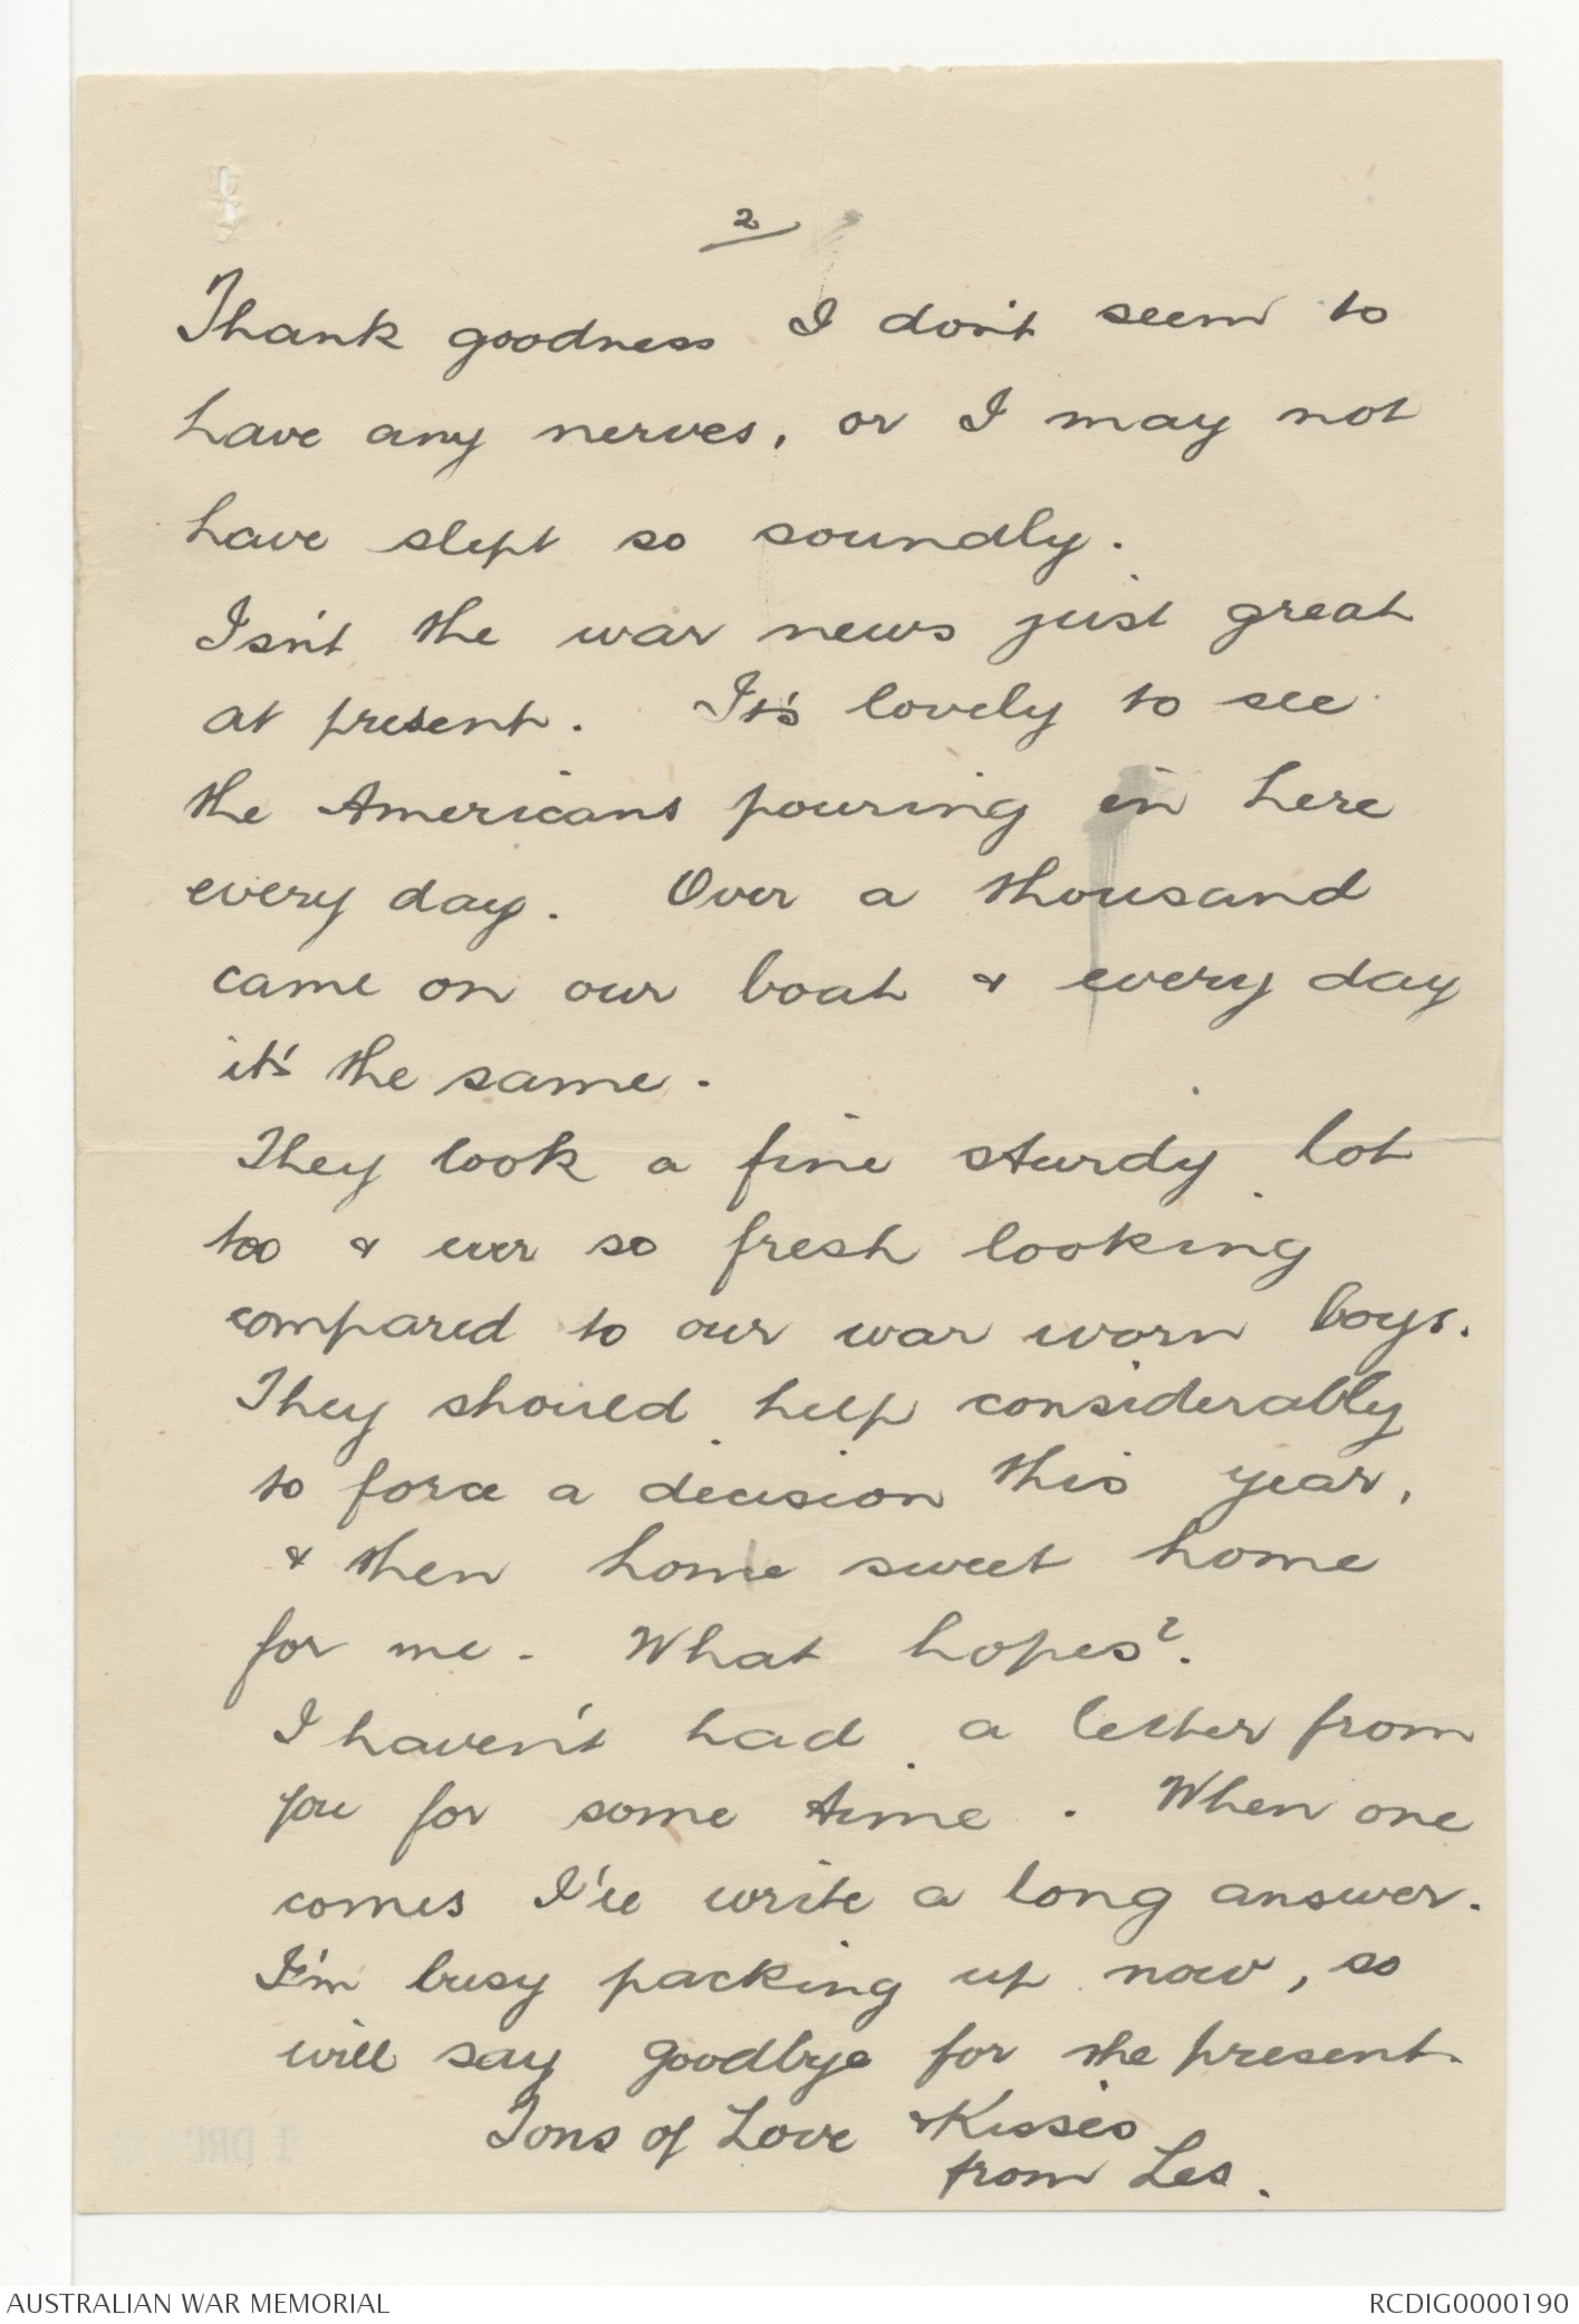 2
Thank goodness I don't seem to
have any nerves, or I may not
have slept so soundly.
Isn't the war news just great
at present. It's lovely to see
the Americans pouring in here
every day. Over a thousand
came on our boat & every day
it's the same.
They look a fine sturdy lot
too & ever so fresh looking
compared to our war worn boys.
They should help considerably
to force a decision this year,
& then home sweet home
for me. What hopes?
I haven't had a letter from
you for some time. When one
comes I'll write a long answer.
I'm busy packing up now, so
will say goodbye for the present.
Tons of Love & Kisses
from Les.
AUSTRALIAN WAR MEMORIAL
RCDIG0000190